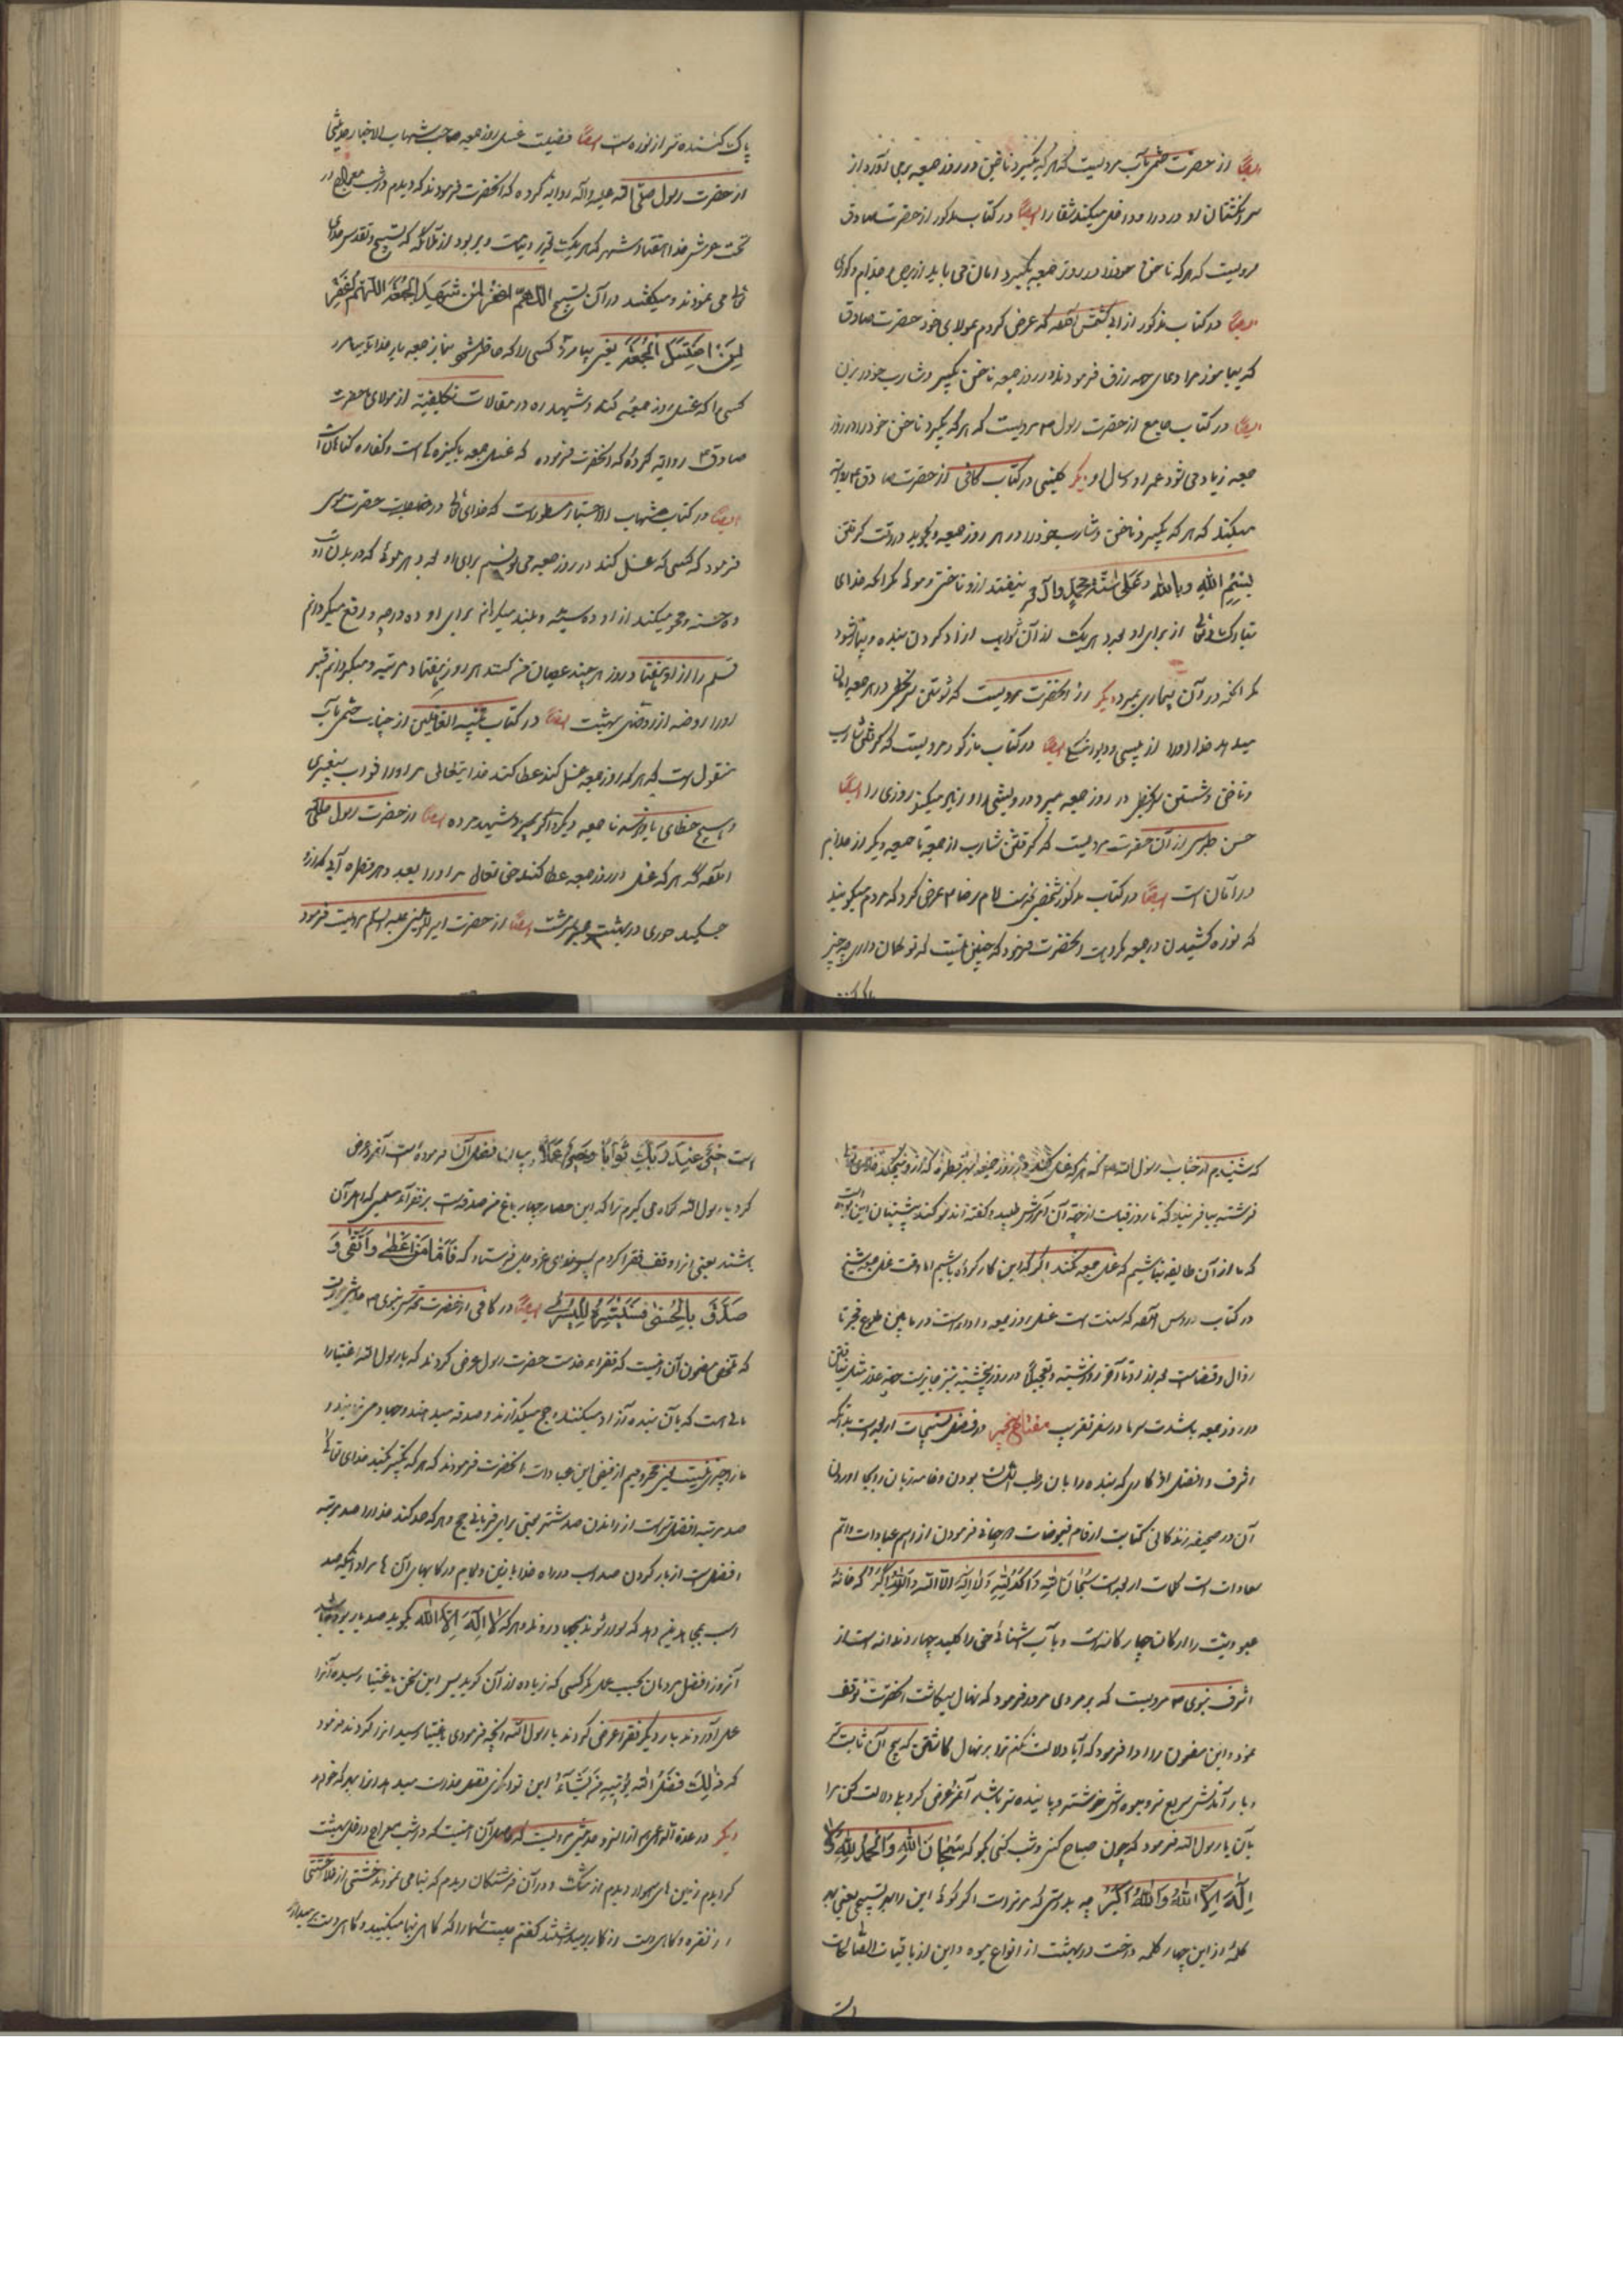 ایضاً از حضرت ختمی مآب مرویست که هر که بگیرد ناخن در روز جمعه برمی آورد از
سر انگشتان او درد را و داخل میکند شفا را ایضاً در کتاب مذکور از حضرت صادق
مرویست که هر که ناخن خود را در روز جمعه بگیرد امان می یابد از برص و جذام و کوری
ایضاً در کتاب مذکور از ابی کهمش که عرض کردم بمولای خود حضرت صادق
که بیاموز مرا دعای جهة رزق فرمودند در روز جمعه ناخن بگیر و شارب خود بزن
ایضاً در کتاب جامع از حضرت رسول ص مرویست که هر که بگیرد ناخن خود را در روز
جمعه زیاد می شود عمر او و مال او دیگر کلینی در کتاب کافی از حضرت صادق ع روایة
میکند که هر که بگیرد ناخن و شارب خود را در هر روز جمعه و بگوید در وقت گرفتن
بسم الله و بالله و علی سنة محمد وآل محمد نیفتد ازو ناخنی و موئی مگر آنکه خدای
تبارک و تعالی از برای او بهر یک از آن ثواب آزاد کردن بنده و بیمار نشود
مگر آنکه در آن بیماری بمیرد دیگر از آنحضرت مرویست که شوئیدن سر بخطمی در هر جمعه امان
میدهد خدا او را از پیسی و دیوانگی ایضاً در کتاب مذکور مرویست که گرفتن شارب
و ناخن و شستن سر بخطمی در روز جمعه میبرد درویشی را و زیاد میکند روزی را ایضاً
حسن طبرسی از آن حضرت مرویست که گرفتن شارب از جمعه تا جمعه دیگر از جذام
در امان است ایضاً در کتاب مذکور شخصی بخدمت امام رضا ع عرض کرد که مردم میگویند
که نوره کشیدن در جمعه مکروهست آنحضرت فرمود که چنین نیست که تو گمان داری چه چیز
پاک کننده تر از نوره است ایضاً فضیلت غسل روز جمعه صاحب شهاب الاخبار حدیثی
از حضرت رسول صلی الله علیه وآله روایة کرده که آنحضرت فرمودند که دیدم در شب معراج در
تحت عرش خدا هفتاد شهر که هر یک بقدر دنیات و پر بود از ملائکه که تسبیح و تقدیس خدای
تعالی می نمودند و میگفتند در آن تسبیح اللهم اغفر لمن شهد الجمعة اللهم اغفر
لمن اغتسل الجمعة یعنی بیامرز کسی را که حاضر شود نماز جمعه بار خدایا بیامرز
کسی را که غسل روز جمعه کند و شهید ره در مقالات تکلیفیه از مولای حضرت
صادق ع روایة کرده که آنحضرت فرموده که غسل جمعه پاکیزه کی است و کفاره گناهان است
ایضاً در کتاب شهاب الاخبار مسطور است که خدای تعالی در مخاطبات حضرت موسی
فرمود که کسی که غسل کند در روز جمعه می نویسم برای او بهر موئی که در بدن اوست
ده حسنه و محو میکنم از او ده سیئه و بلند میگردانم برای او ده درجه و رفع میگردانم
قلم را از او هفتاد روز هر چند عصیان من کند هر روز هفتاد مرتبه و میگردانم قبر
او را روضه از روضهای بهشت ایضاً در کتاب تنبیه الغافلین از جناب ختمی مآب
منقول است که هر که روز جمعه غسل کند عطا کند خدایتعالی مر او را ثواب پیغمبری
و هیچ خطای تا جمعه دیگر و اگر بمیرد شهید مرده ایضاً از حضرت رسول صلی الله
که هر که غسل در روز جمعه عطا کند حق تعالی مر او را بعدد هر قطره آبی که ازو
میچکد حوری در بهشت ایضاً از حضرت امیرالمؤمنین علیه السلم مرویست فرمود
که شنیدم از جناب رسول الله ص که هر که غسل کند در روز جمعه بهر قطره که ازو میچکد خدای تعالی
فرشته بیافریند که تا روز قیامت از جهة آن آمرزش طلبد و گفته اند که پیشینیان این بوده است
که ما از آن طایفه نباشیم که غسل جمعه نکنند اگر که این کار کرده باشیم اما وقت غسل جمعه شیخ
در کتاب دروس که سنت است غسل روز جمعه و ادا است در مابین طلوع فجر تا
زوال و قضاست بعد از او تا آخر روز شنبه و تعجیل در روز پنجشنبه نیز جایز است جهة عذر مثل نیافتن
در روز جمعه باشدت سرما در سفر تقریب مفتاح خیر در فضل تسبیحات اربعه است بدانکه
اشرف و افضل اذکاری که بنده را بان رطب اللسان بودن و خامه زبان را بیاد آوردن
آن در صحیفه زندگانی کتابت ارقام فیوضات جاودانی فرمودن از اهم عبادات و اتم
سعادات است کلمات اربعه است سبحان الله والحمد لله ولا اله الا الله والله اکبر که خانه
عبودیت را ارکان چهار گانه است و باب آشنائی حق را کلید چهار دندانه است از
اشرف نبوی ص مرویست که بر مردی مرور فرمود که نهال میکاشت آنحضرت توقف
نمود و این مضمون را ادا فرمود که آیا دلالت نکنم ترا بر نهال کاشتنی که بیخ آن ثابت تر
و بار آمدنش سریع تر و میوه اش خوشتر و پاینده تر باشد آنمرد عرض کرد بلی دلالت کن مرا
بآن یا رسول الله فرمود که چون صباح کنی و شب کنی بگو که سبحان الله والحمد لله ولا
اله الا الله والله اکبر چه بدرستی که مر تراست اگر گوئی این را بهر تسبیحی یعنی بهر
کلمه از این چهار کلمه درخت در بهشت از انواع میوه و این از باقیات الصالحات
است
است خیر عند ربک ثوابا وخیر املا و بیان فضل آن فرموده است آنمرد عرض
کرد یا رسول الله گواه می گیرم ترا که این حصار چهار باغ من صدقه است بر فقراء مسلمین که اهل آن
باشند یعنی انرا وقف فقرا کردم پس خدای عزوجل فرستاد که فاما من اعطی واتقی و
صدق بالحسنی فسنیسره للیسری ایضاً در کافی از حضرت نبوی ص حدیثی مرویست
که ملخص مضمون آن اینست که فقراء بخدمت حضرت رسول عرض کردند که یا رسول الله اغنیا را
مالی است که بآن بنده آزاد میکنند و حج میگذارند و صدقه میدهند و جهاد می نمایند و
ما را چیزی نیست پس محرومیم از فیض این عبادات آنحضرت فرمودند که هر که تکبیر گوید خدای تعالی
صد مرتبه افضل تر است از راندن صد شتر بختی برای قربانی حج و هر که حمد کند خدا را صد مرتبه
افضل است از بار کردن صد اسب در راه خدا با زین و لجام و رکابهای آن ها سواد آنکه صد
اسب بمجاهدین دهد که سوار شوند بجهاد روند و هر که لا اله الا الله بگوید صد بار بوده باشد
آنروز افضل مردمان بحسب عمل مگر کسی که زیاده از آن گوید پس این سخن باغنیا رسیده آنرا
عمل آوردند بار دیگر فقرا عرض کردند یا رسول الله آنچه فرمودی باغنیا رسید انرا کردند فرمود
که ذلک فضل الله یؤتیه من یشاء این توانگری فضل خداست میدهد انرا بهر که خواهد
دیگر در عدة الداعی از انسرور حدیثی مرویست که حاصل آن اینست که در شب معراج داخل بهشت
گردیدم زمین های هموار دیدم از مشک و در آن فرشتگان دیدم که بنا می نمودند خشتی از طلا و خشتی
از نقره و گاهی دست از کار میداشتند گفتم چیست شما را که گاهی بنا میکنید و گاهی دست میدارید